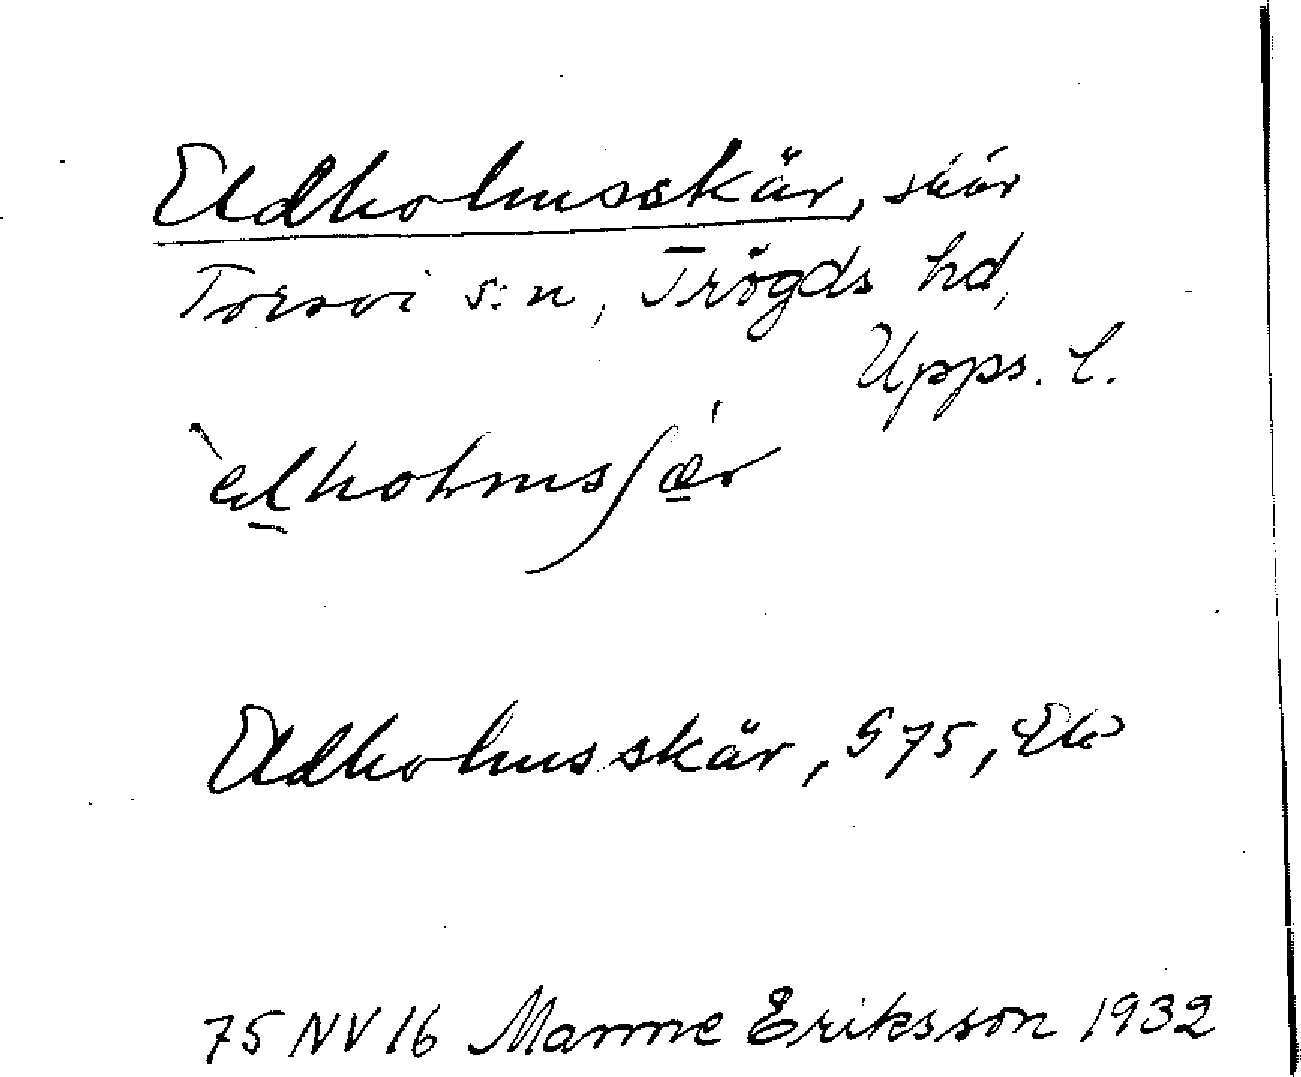 Eldholmsskär, skär
Torsvi s:n, Trögds hd,
Upps. l.
`elholmsʃæ̱'r
Eldholmsskär, G 75, Ek
75 NV 16 Manne Eriksson 1932